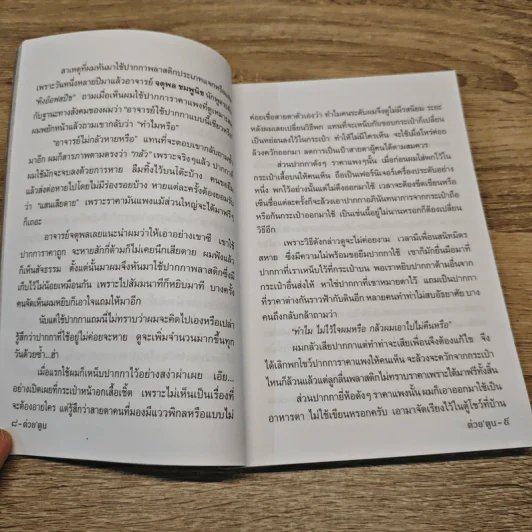 สาเหตุที่ผมหันมาใช้ปากกาพลาสติกประเภทแจกฟรี
เพราะวันหนึ่งหลายปีมาแล้วอาจารย์ จตุพล ชมพูนิช นักพูด
ถามเมื่อเห็นผมใช้ปากการาคาแพงที่ดูเหมาะสม
กับฐานะทางสังคมของผมว่า “อาจารย์ใช้ปากกาแบบนี้เชียวหรือ
ผมพยักหน้าแล้วถามเขากลับว่า “ทำไมหรือ”
“อาจารย์ไม่กลัวหายหรือ” แทนที่จะตอบเขากลับถาม
มาอีก ผมก็สารภาพตามตรงว่า “กลัว” เพราะจริงๆแล้ว ปากกา
ผมใช้มักจะจบลงด้วยการหาย ลืมทิ้งไว้บนโต๊ะบ้าง คนขอยืม
แล้วส่งต่อหายไปโดยไม่มีร่องรอยบ้าง หายแต่ละครั้งต้องยอมรับ
ว่า “แสนเสียดาย” เพราะราคามันแพงแม้ส่วนใหญ่จะได้มาฟรี
ก็เถอะ
อาจารย์จตุพลเลยแนะนำผมว่าให้เอาอย่างเขาซี เขาใช้
ปากการาคาถูก จะหายสักกี่ด้ามก็ไม่เคยนึกเสียดาย ผมฟังแล้ว
ก็เห็นสัจธรรม ตั้งแต่นั้นมาผมจึงหันมาใช้ปากกาพลาสติกซึ่งมี
เก็บไว้ไม่น้อยเหมือนกัน เพราะไปสัมมนาที่ก็หยิบมาที บางครั้ง
คนจัดเห็นผมหยิบก็เอาใจแถมให้มาอีก
นับแต่ใช้ปากกาแถมนี่ไม่ทราบว่าผมจะคิดไปเองหรือเปล่า
รู้สึกว่าปากกาที่ใช้อยู่ไม่ค่อยจะหาย ดูจะเพิ่มจำนวนมากขึ้นทุก
วันด้วยซ้ำ...ฮ่า
เมื่อแรกใช้ผมก็เหน็บปากกาไว้อย่างสง่าผ่าเผย เอ๊ย...
อย่างเปิดเผยที่กระเป๋าหน้าอกเสื้อเชิ้ต เพราะไม่เห็นเป็นเรื่องที่
จะต้องอายใคร แต่รู้สึกว่าสายตาคนที่มองมีแววพิกลหรือแบบไม่
๘ - ต่วย'ตูน
ค่อยเชื่อสายตาตัวเองว่า ทำไมคนระดับผมจึงดูไม่มีรสนิยม ระยะ
หลังผมเลยเปลี่ยนวิธีพก แทนที่จะเหน็บกับขอบกระเป๋าก็เปลี่ยน
เป็นหย่อนลงไว้ในกระเป๋า ทำให้ไม่มีใครเห็น จะใช้เมื่อไหร่ค่อย
ล้วงควักออกมา ลดการเป็นเป้าสายตาผู้คนได้ตามสมควร
ส่วนปากกาดังๆ ราคาแพงๆนั้น เมื่อก่อนผมใส่พกไว้ใน
กระเป๋าเสื้อเหน็บให้คนเห็น ถือเป็นเฟอร์นิเจอร์เครื่องประดับอย่าง
หนึ่ง พกไว้อย่างนั้นแต่ไม่ดึงออกมาใช้ เวลาจะต้องขีดเขียนหรือ
เซ็นชื่อแต่ละครั้งก็จะล้วงเอาปากกาอภินันทนาการจากกระเป๋าถือ
หรือก้นกระเป๋าออกมาใช้ เป็นเช่นนี้อยู่ไม่นานหรอกก็ต้องเปลี่ยน
วิธีอีก
เพราะวิธีดังกล่าวดูจะไม่ค่อยงาม เวลามีเพื่อนสนิทมิตร
สหาย ซึ่งมีความไม่พร้อมขอยืมปากกาใช้ เขาก็มักยื่นมือมาที่
ปากกาที่เราเหน็บไว้ที่กระเป๋าบน พอเราหยิบปากกาด้ามอื่นจาก
กระเป๋าอื่นส่งให้ หาใช่ปากกาที่เขาหมายตาไว้ แถมเป็นปากกา
ที่ราคาต่างกันราวฟ้ากับดินอีก หลายคนทำท่าไม่สบอัธยาศัย บาง
คนถึงกลับกล้าถามว่า
“ทำไม ไม่ไว้ใจผมหรือ กลัวผมเอาไปไม่คืนหรือ”
ผมกลัวเสียปากกาแต่ทำท่าจะเสียเพื่อนจึงต้องแก้ไข จึง
ได้เลิกพกโชว์ปากการาคาแพงให้คนเห็น จะล้วงจะควักจากกระเป๋า
ไหนก็ล้วนแล้วแต่ลูกลื่นพลาสติกไม่ทราบราคาเพราะได้มาฟรีทั้งสิ้น
ส่วนปากกายี่ห้อดังๆ ราคาแพงนั้น ผมก็เอาออกมาใช้เป็น
อาหารตา ไม่ใช้เขียนหรอกครับ เอามาจัดเรียงไว้ในตู้โชว์ที่บ้าน
ต่วย'ตูน - ๙